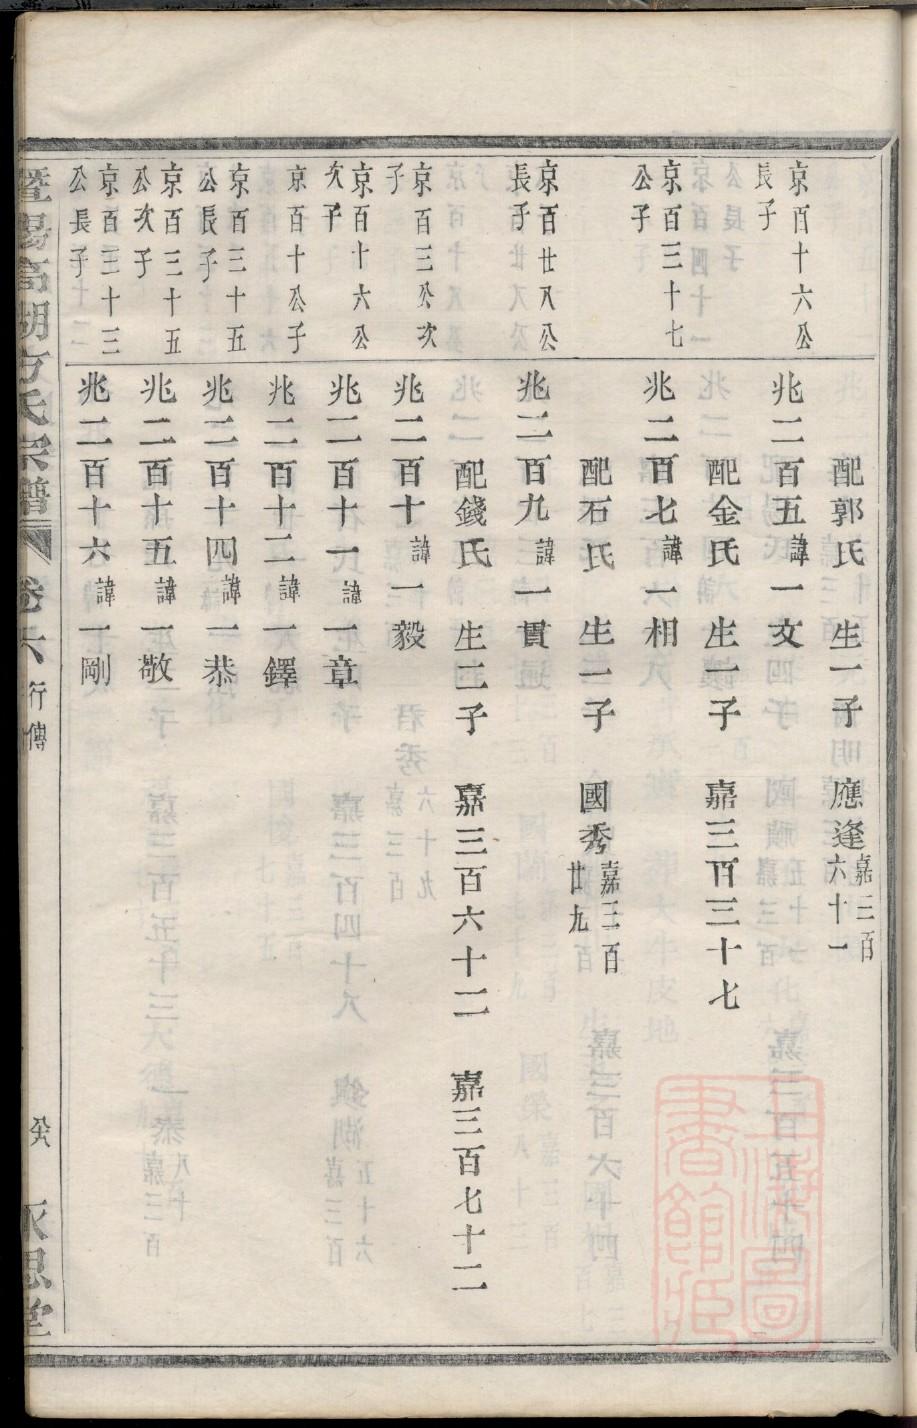 配郭氏 生一子 應逢嘉三百六十一
京百十六公長子
兆二百五諱一文
配金氏 生一子 嘉三百三十七
京百三十七公子
兆二百七諱一相
配石氏 生一子 國秀嘉三百廿九
京百廿八公長子
兆二百九諱一貫
配錢氏 生二子 嘉三百六十二 嘉三百七十二
京百三公次子
兆二百十諱一毅
京百十六公次子
兆二百十一諱一章
京百十公子
兆二百十二諱一鐸
京百三十五公長子
兆二百十四諱一恭
京百三十五公次子
兆二百十五諱一敬
京百三十三公長子
兆二百十六諱一剛
暨陽高湖方氏宗譜 卷六 行傳 思堂